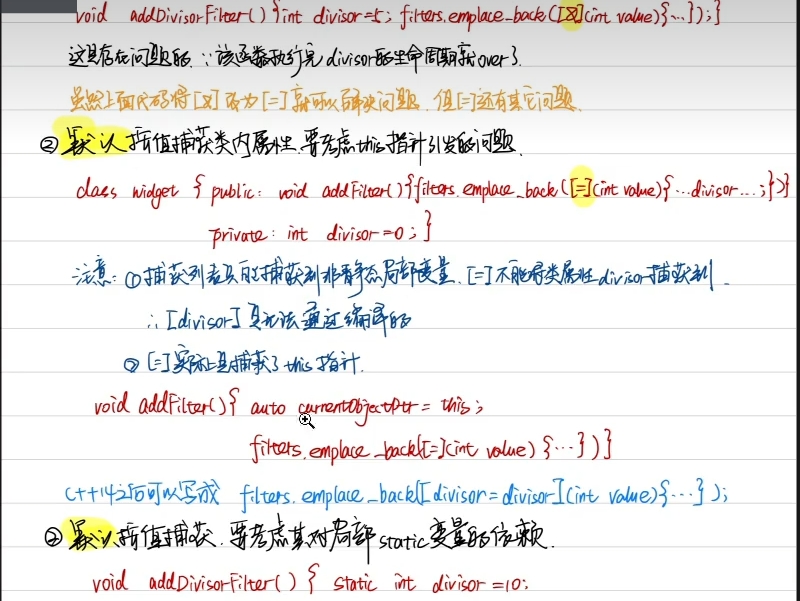 void addDivisorFilter() {int divisor=5; filters.emplace_back([&](int value){…});}
这是存在问题的, ∵该函数执行完divisor的生命周期就over了.
虽然上面代码将[&]改为[=]就可以解决问题, 但[=]还有其它问题.
② 默认按值捕获类内属性, 要考虑this指针引发的问题.
class widget { public: void addFilter(){filters.emplace_back([=](int value){…divisor…;})}
private: int divisor=0; }
注意: ① 捕获列表只能捕获到非静态局部变量, [=]不能将类属性divisor捕获到.
∴ [divisor]是无法通过编译的
② [=]实际上是捕获了this指针.
void addFilter(){ auto currentObjectPtr = this;
filters.emplace_back([=](int value) {…})}
C++14之后可以写成 filters.emplace_back([divisor=divisor](int value){…});
② 默认按值捕获, 要考虑其对局部static变量的依赖.
void addDivisorFilter() { static int divisor=10;